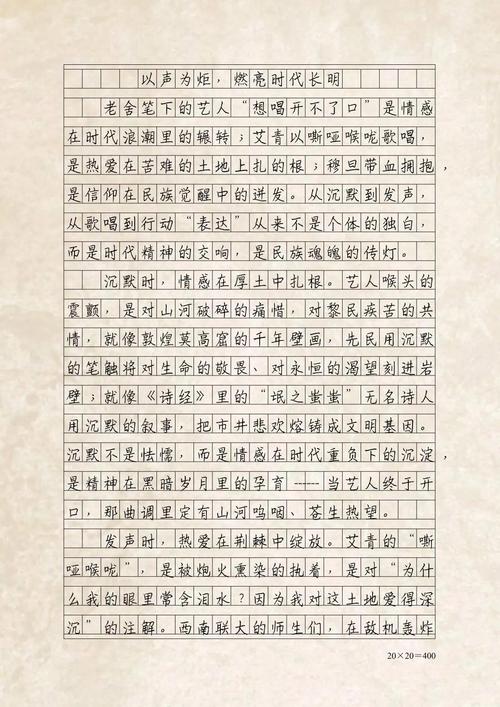 以声为炬，燃亮时代长明
老舍笔下的艺人“想唱开不了口”是情感
在时代浪潮里的辗转；艾青以嘶哑喉咙歌唱，
是热爱在苦难的土地上扎的根；穆旦带血拥抱，
是信仰在民族觉醒中的迸发。从沉默到发声，
从歌唱到行动“表达”从来不是个体的独白，
而是时代精神的交响，是民族魂魄的传灯。
沉默时，情感在厚土中扎根。艺人喉头的
震颤，是对山河破碎的痛惜，对黎民疾苦的共
情，就像敦煌莫高窟的千年壁画，先民用沉默
的笔触将对生命的敬畏、对永恒的渴望刻进岩
壁；就像《诗经》里的“氓之蚩蚩”无名诗人
用沉默的叙事，把市井悲欢熔铸成文明基因。
沉默不是怯懦，而是情感在时代重负下的沉淀，
是精神在黑暗岁月里的孕育------当艺人终于开
口，那曲调里定有山河呜咽、苍生热望。
发声时，热爱在荆棘中绽放。艾青的“嘶
哑喉咙”，是被炮火熏染的执着，是对“为什
么我的眼里常含泪水？因为我对这土地爱得深
沉”的注解。西南联大的师生们，在敌机轰炸
20×20=400